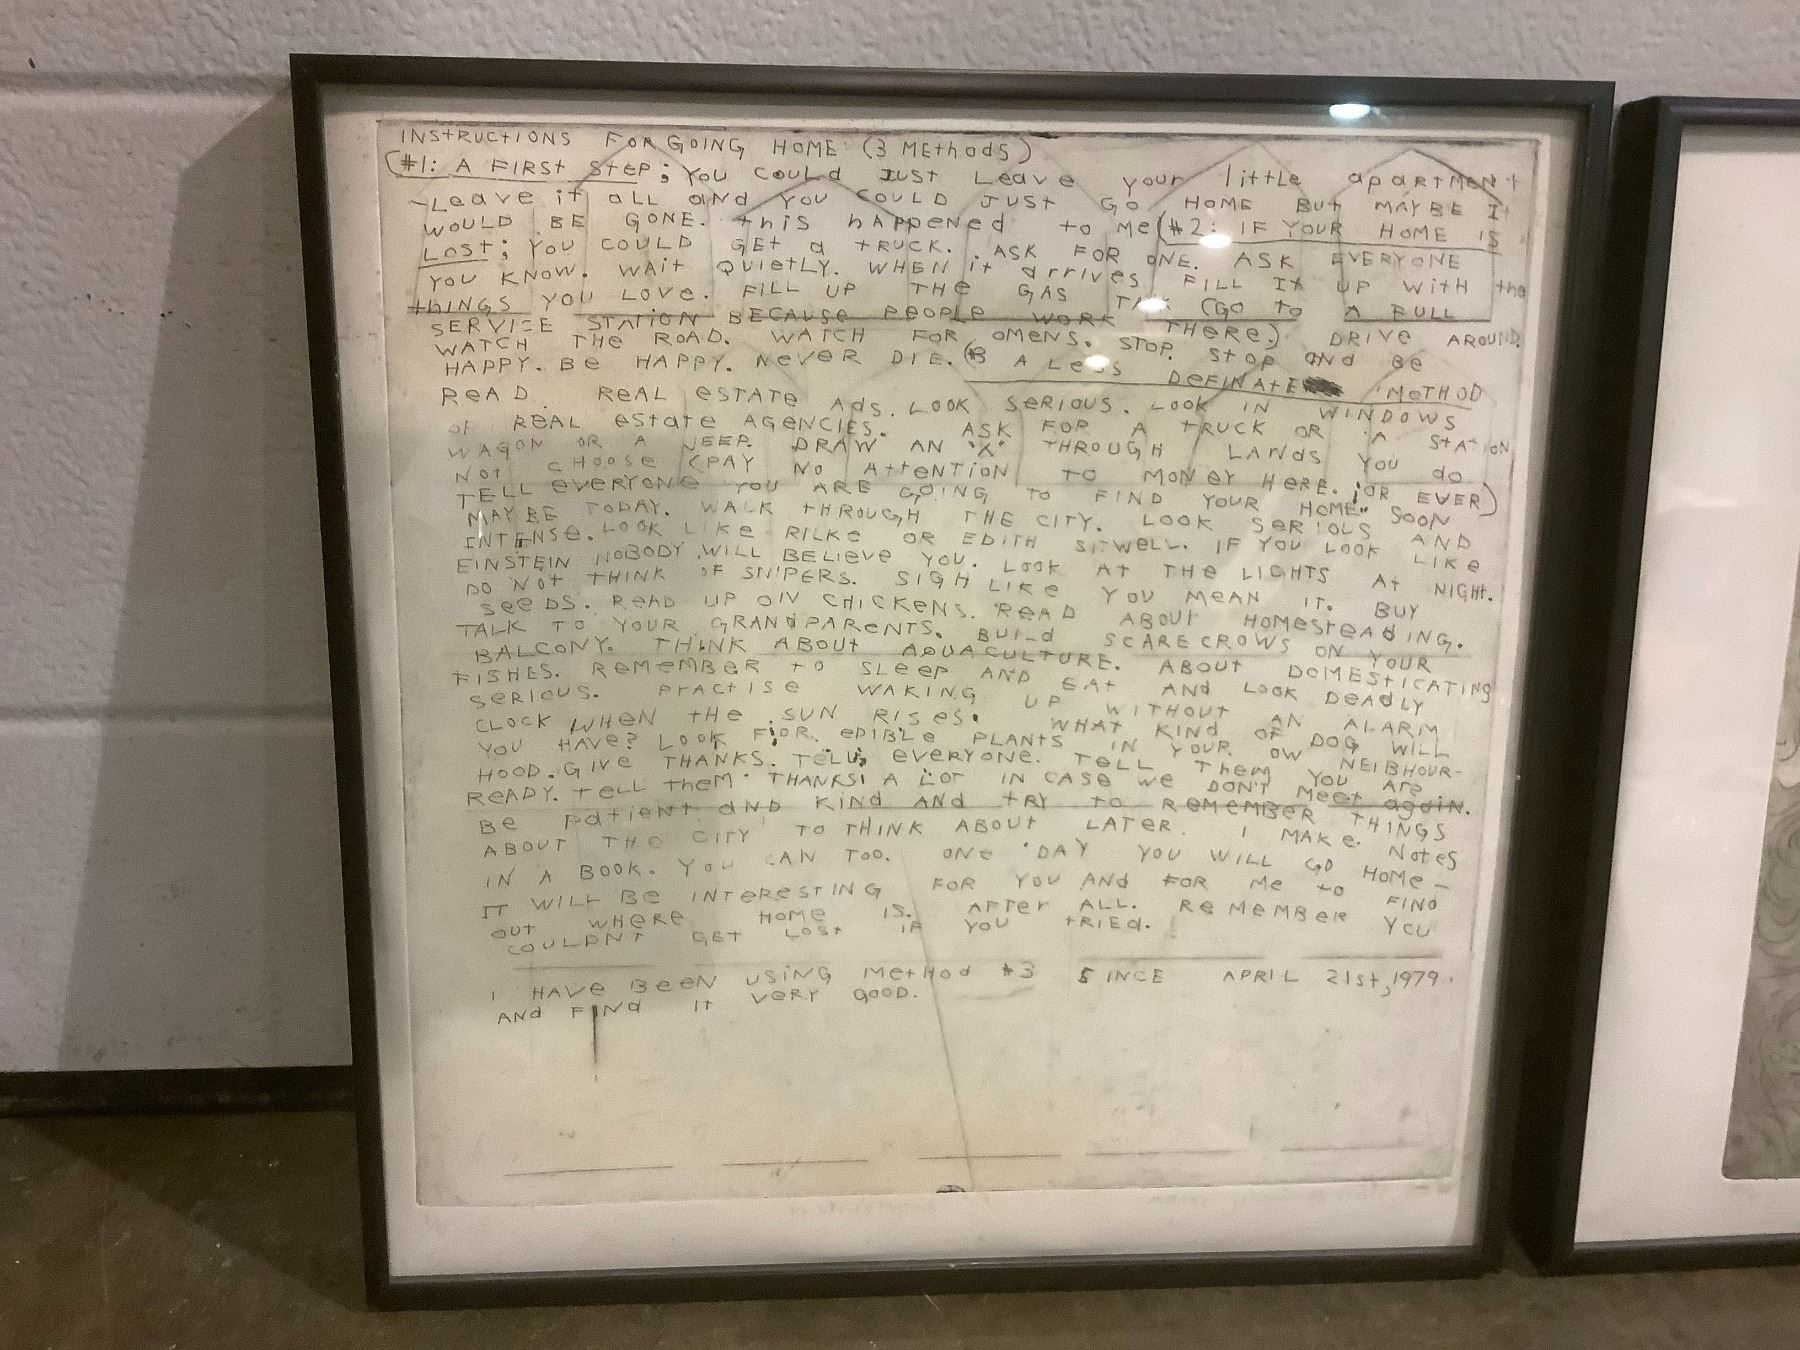 INStRUCtIONS FOR GOING HOME (3 MEthOdS)
(#1: A FIRSt StEP; YOU COULd JUSt Leave your littLe apARtMENt
-Leave it aLL and YOU COULD JUSt GO HOME BUt MAYBE It
WOULD BE GONE. this happened to me (#2: IF YOUR HOME IS
LOSt; YOU COULD GEt a tRUCK. ASK FOR ONE. ASK EVERYONE
YOU KNOW. WAit QUIEtLY. WHEN it arrives FILL It UP WitH the
tHINGS YOU LOVE. FILL UP THE GAS TANK (GO to A FULL
SERVICE StAtiON BECAUSe PEOPLE WORK THERe.) DRIVE AROUND.
WATCH THE ROAD. WATCH FOR OMENS. STOP. StOP ANd Be
HAPPY. Be HAPPY. NeVER DIE. (#3 A LeSS DeFINAtE MetHOD
ReAD REAL eStATE AdS. LOOK SeRIOUS. LOOK IN WINDOWS
OF REAL eStatE AGENCIES. ASK FOR A tRUCK OR A StAtION
WAGON OR A JEEP. DRAW AN "X" tHROUGH LANdS YOU do
NOt CHOOSe (PAY NO AttENtION TO MONeY HERE. OR EVER)
TELL eVERYONE YOU ARE GOING tO FIND YOUR HOME SOON
MAYBE TODAY. WALK tHROUGH THE CITY. LOOK SeRIOUS AND
INtENSe. LOOK LIKe RILKe OR EDItH SitWELL. IF YOU LOOK LIKe
EINSTEIN NOBODY WILL BELIeve YOU. LOOK At tHE LIGHtS At NIGHt.
DO NOt tHINK OF SNIPERS. SIGH LIKe YOU MEAN It. BUY
SeeDS. ReAD UP ON CHICKeNS. ReAD ABOUt HOMeSteADING.
TALK TO YOUR GRANdPARENtS. BUILd SCARECROWS ON YOUR
BALCONY. THINK ABOUt AQUACULTURE. ABOUt DOMEStICAtING
FISHES. ReMeMBER tO SLEEP AND EAt ANd LOOK DEAdLY
SERIOUS. PRActISe WAKING UP WITHOUt AN ALARM
CLOCK WHEN tHe SUN RISeS. WHAt KIND OF DOG WILL
YOU HAVE? LOOK FOR eDIBLe PLANtS IN YOUR OW NEIBHOUR-
HOOD. GIVe THANKS. TELL eVERYONE. TELL THem YOU ARe
READY. tELL tHem THANKS A LOt IN CASe we DON't MEEt again.
Be Patient and KINd ANd tRY to REMEMBER THINGS
ABOUt tHe CItY TO tHINK ABOUt LATER. I MAKe NOteS
IN A BOOK. YOU CAN TOO. ONe DAY YOU WILL GO HOMe -
IT WILL BE INteReStING FOR YOU ANd FOR Me to FIND
OUt WHERe HOME IS. AFteR ALL. ReMEMBeR YOU
COULDN'T GET LOSt IF YOU tRIEd.
I HAVe BEeN USING MetHOd #3 SINCE APRIL 21St, 1979.
ANd FINd It VeRY GOOD.